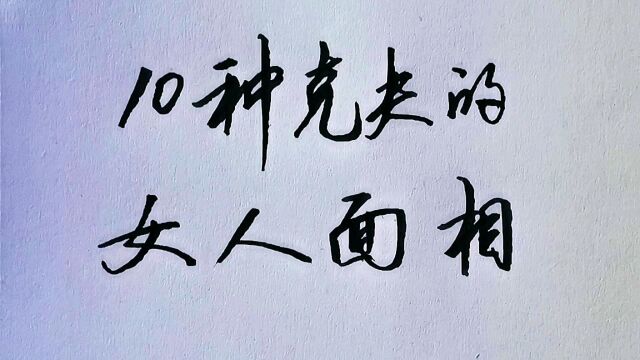 10种克夫的
女人面相